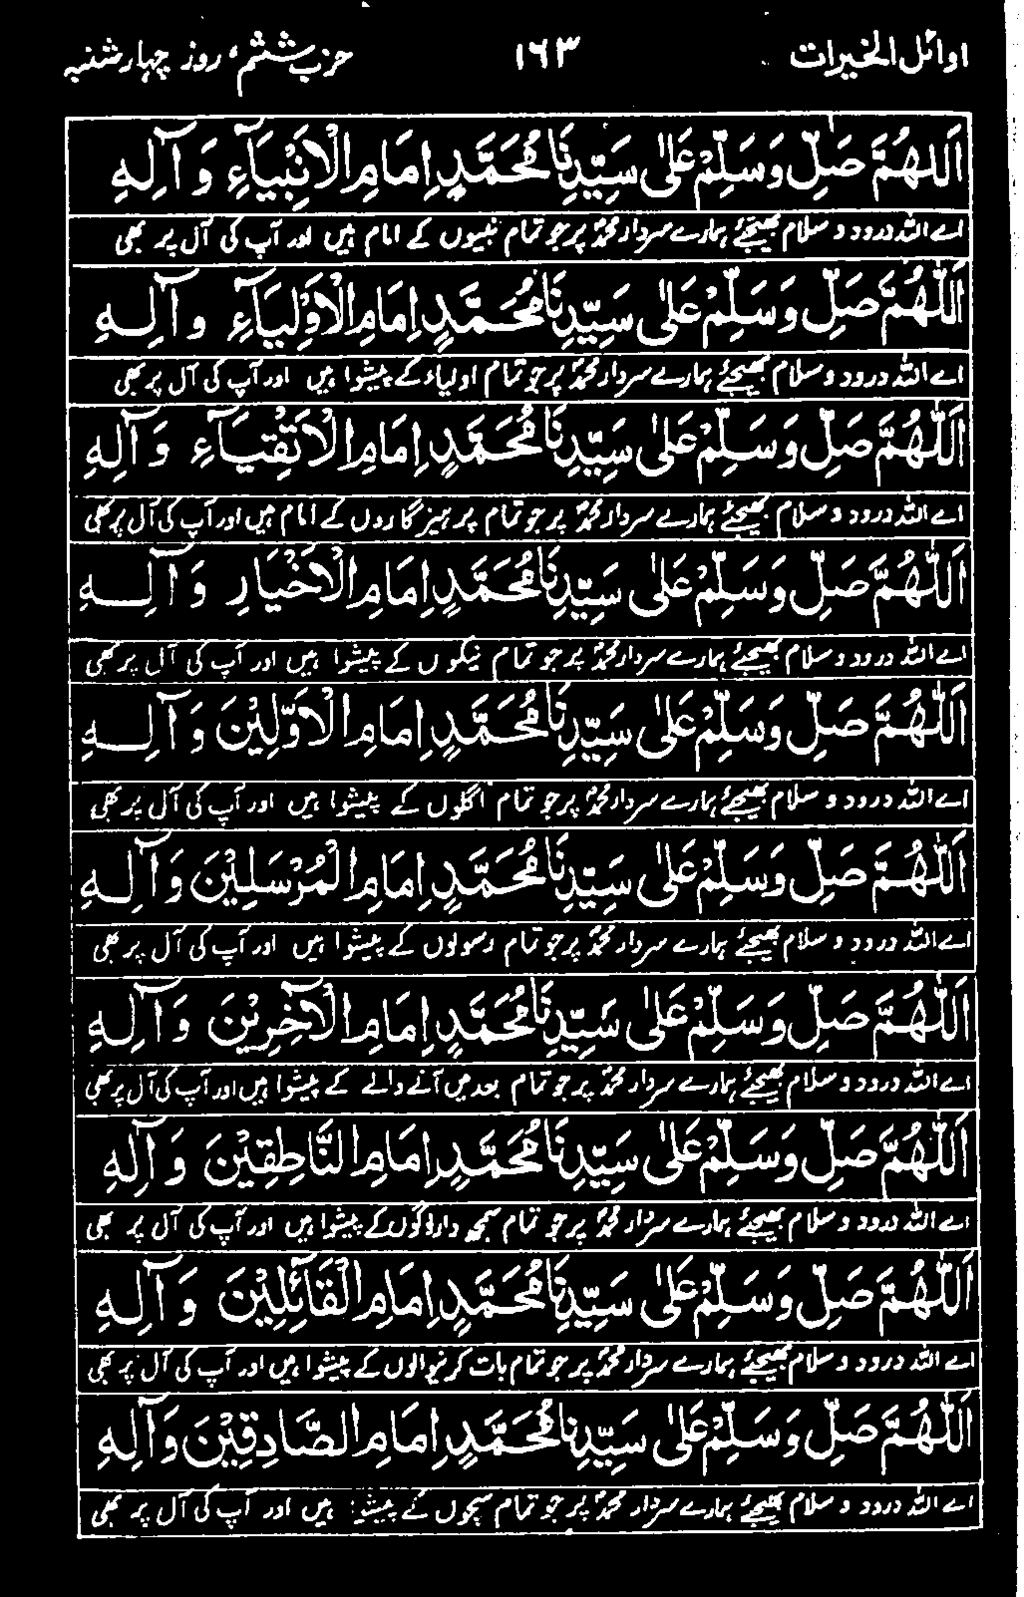 اوائل الخیرات ۱۶۳ حزب ششم، روز چہارشنبہ
اَللّٰهُمَّ صَلِّ وَسَلِّمْ عَلٰى سَيِّدِنَا مُحَمَّدٍ اِمَامِ الْاَنْبِيَآءِ وَ آلِهِ
اے اللہ درود و سلام بھیجئے ہمارے سردار محمدؐ پر جو تمام نبیوں کے امام ہیں اور آپ کی آل پر بھی
اَللّٰهُمَّ صَلِّ وَسَلِّمْ عَلٰى سَيِّدِنَا مُحَمَّدٍ اِمَامِ الْاَوْلِيَآءِ وآلِهِ
اے اللہ درود و سلام بھیجئے ہمارے سردار محمدؐ پر جو تمام اولیاء کے پیشوا ہیں اور آپ کی آل پر بھی
اَللّٰهُمَّ صَلِّ وَسَلِّمْ عَلٰى سَيِّدِنَا مُحَمَّدٍ اِمَامِ الْاَتْقِيَآءِ وَآلِهِ
اے اللہ درود و سلام بھیجئے ہمارے سردار محمدؐ پر جو تمام پرہیز گاروں کے امام ہیں اور آپ کی آل پر بھی
اَللّٰهُمَّ صَلِّ وَسَلِّمْ عَلٰى سَيِّدِنَا مُحَمَّدٍ اِمَامِ الْاَخْيَارِ وَآلِهِ
اے اللہ درود و سلام بھیجئے ہمارے سردار محمدؐ پر جو تمام نیکوں کے پیشوا ہیں اور آپ کی آل پر بھی
اَللّٰهُمَّ صَلِّ وَسَلِّمْ عَلٰى سَيِّدِنَا مُحَمَّدٍ اِمَامِ الْاَوَّلِيْنَ وَآلِهِ
اے اللہ درود و سلام بھیجئے ہمارے سردار محمدؐ پر جو تمام اگلوں کے پیشوا ہیں اور آپ کی آل پر بھی
اَللّٰهُمَّ صَلِّ وَسَلِّمْ عَلٰى سَيِّدِنَا مُحَمَّدٍ اِمَامِ الْمُرْسَلِيْنَ وَآلِهِ
اے اللہ درود و سلام بھیجئے ہمارے سردار محمدؐ پر جو تمام رسولوں کے پیشوا ہیں اور آپ کی آل پر بھی
اَللّٰهُمَّ صَلِّ وَسَلِّمْ عَلٰى سَيِّدِنَا مُحَمَّدٍ اِمَامِ الْآخِرِيْنَ وَآلِهِ
اے اللہ درود و سلام بھیجئے ہمارے سردار محمدؐ پر جو تمام بعد میں آنے والے کے پیشوا ہیں اور آپ کی آل پر بھی
اَللّٰهُمَّ صَلِّ وَسَلِّمْ عَلٰى سَيِّدِنَا مُحَمَّدٍ اِمَامِ النَّاطِقِيْنَ وَآلِهِ
اے اللہ درود و سلام بھیجئے ہمارے سردار محمدؐ پر جو تمام سمجھ دار لوگوں کے پیشوا ہیں اور آپ کی آل پر بھی
اَللّٰهُمَّ صَلِّ وَسَلِّمْ عَلٰى سَيِّدِنَا مُحَمَّدٍ اِمَامِ الْقَائِلِيْنَ وَآلِهِ
اے اللہ درود و سلام بھیجئے ہمارے سردار محمدؐ پر جو تمام بات کرنیوالوں کے پیشوا ہیں اور آپ کی آل پر بھی
اَللّٰهُمَّ صَلِّ وَسَلِّمْ عَلٰى سَيِّدِنَا مُحَمَّدٍ اِمَامِ الصَّادِقِيْنَ وَآلِهِ
اے اللہ درود و سلام بھیجئے ہمارے سردار محمدؐ پر جو تمام سچوں کے پیشوا ہیں اور آپ کی آل پر بھی